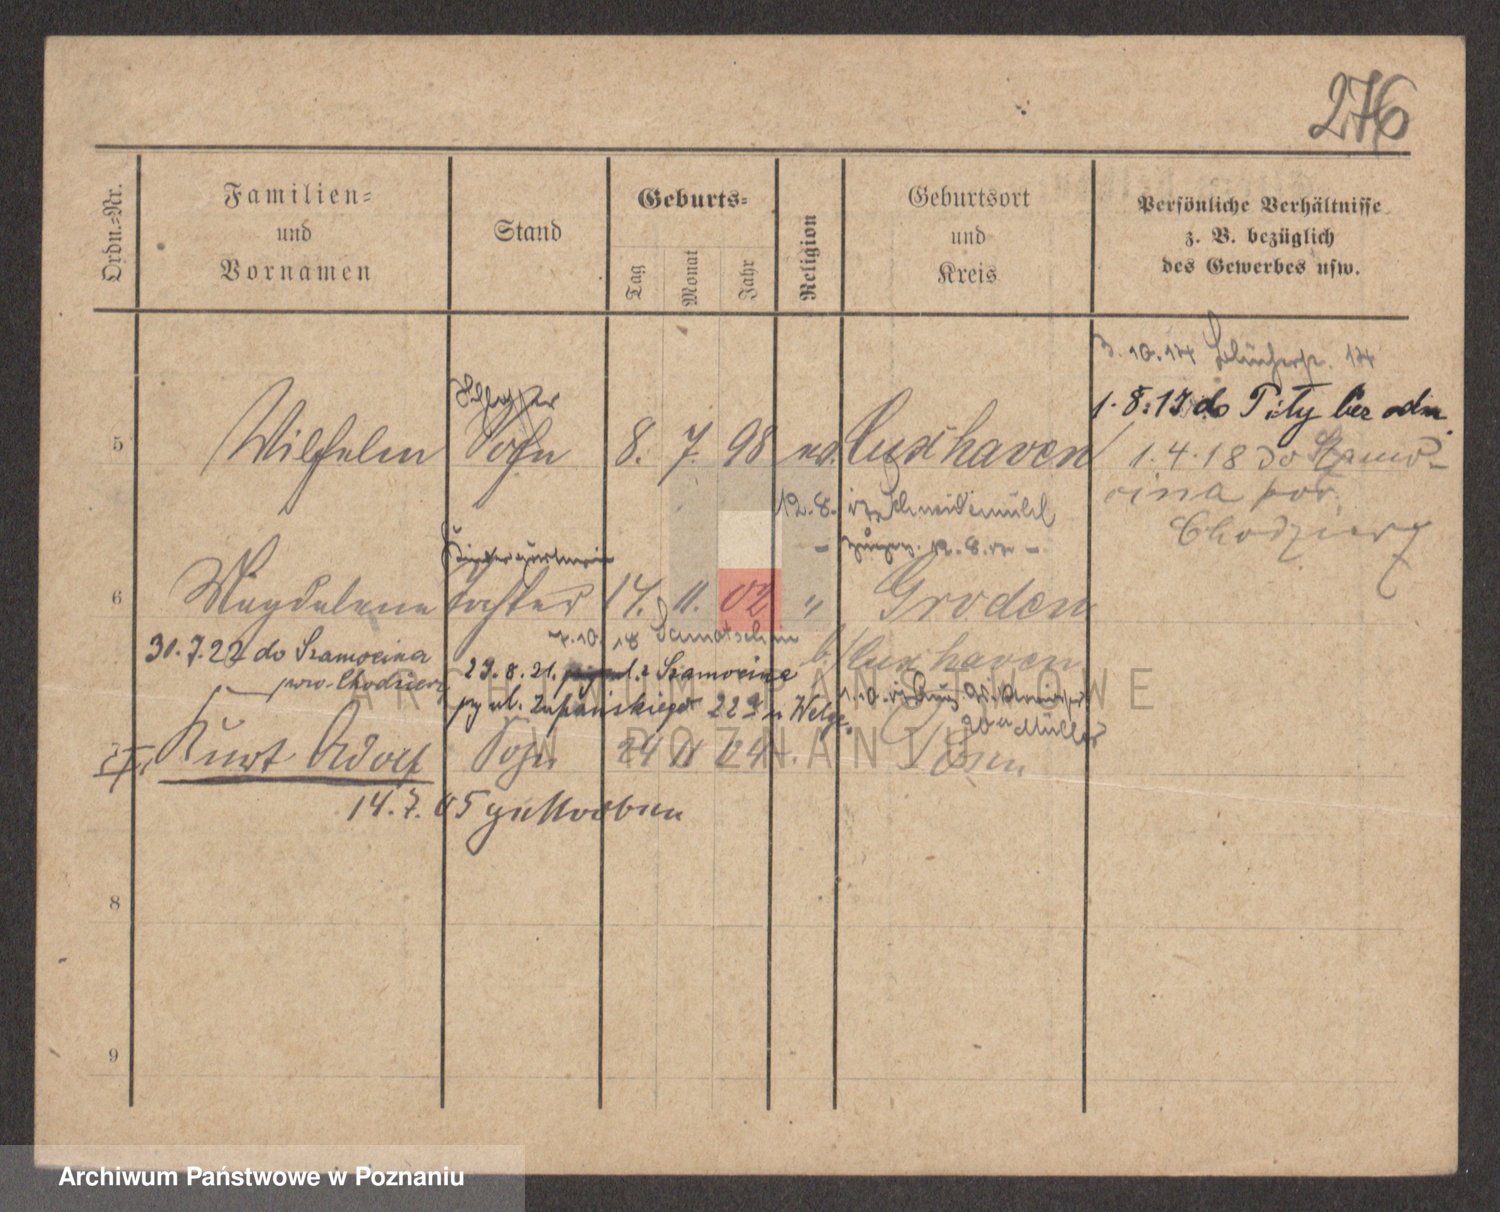 276
Ordn.-Nr.
Familien-
und
Vornamen
Stand
Geburts-
Tag
Monat
Jahr
Religion
Geburtsort
und
Kreis
Persönliche Verhältnisse
z. B. bezüglich
des Gewerbes usw.
3.10.14 Blücherstr. 14
1.8.17 do Piły bez adn.
Schlosser
5 Wilhelm Sohn 8. 7. 98 ev. Cuxhaven
1.4.18 do Szamo-
cina pow.
Chodzież
12.8. Schneidemühl
12.8.
Kindergärtnerin
6 Magdalena Tochter 14. 11. 02 " Groden
b/Cuxhaven
7.10.18 Samotschin
30.7.22 do Szamocina
pow. Chodzież
29.8.21. z Szamocina
ul. Zupańskiego 22 Welge
1.10.
Müller
7. Kurt Adolf Sohn 24 11 04 Posen
14.7.05 gestorben
8
9
ARCHIWUM PAŃSTWOWE
W POZNANIU
Archiwum Państwowe w Poznaniu